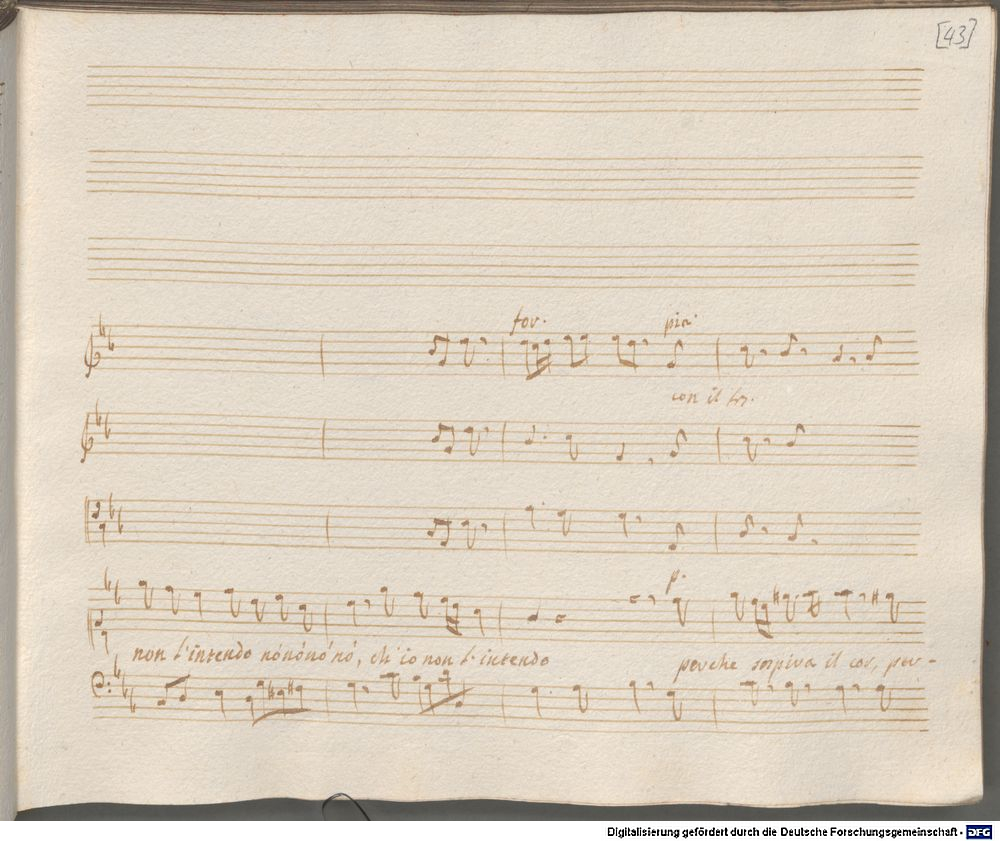 [43]
for. pia.
con il
p.
non l'intendo nò nò nò nò, ch'io non l'intendo perche sospira il cor, per-
Digitalisierung gefördert durch die Deutsche Forschungsgemeinschaft - DFG